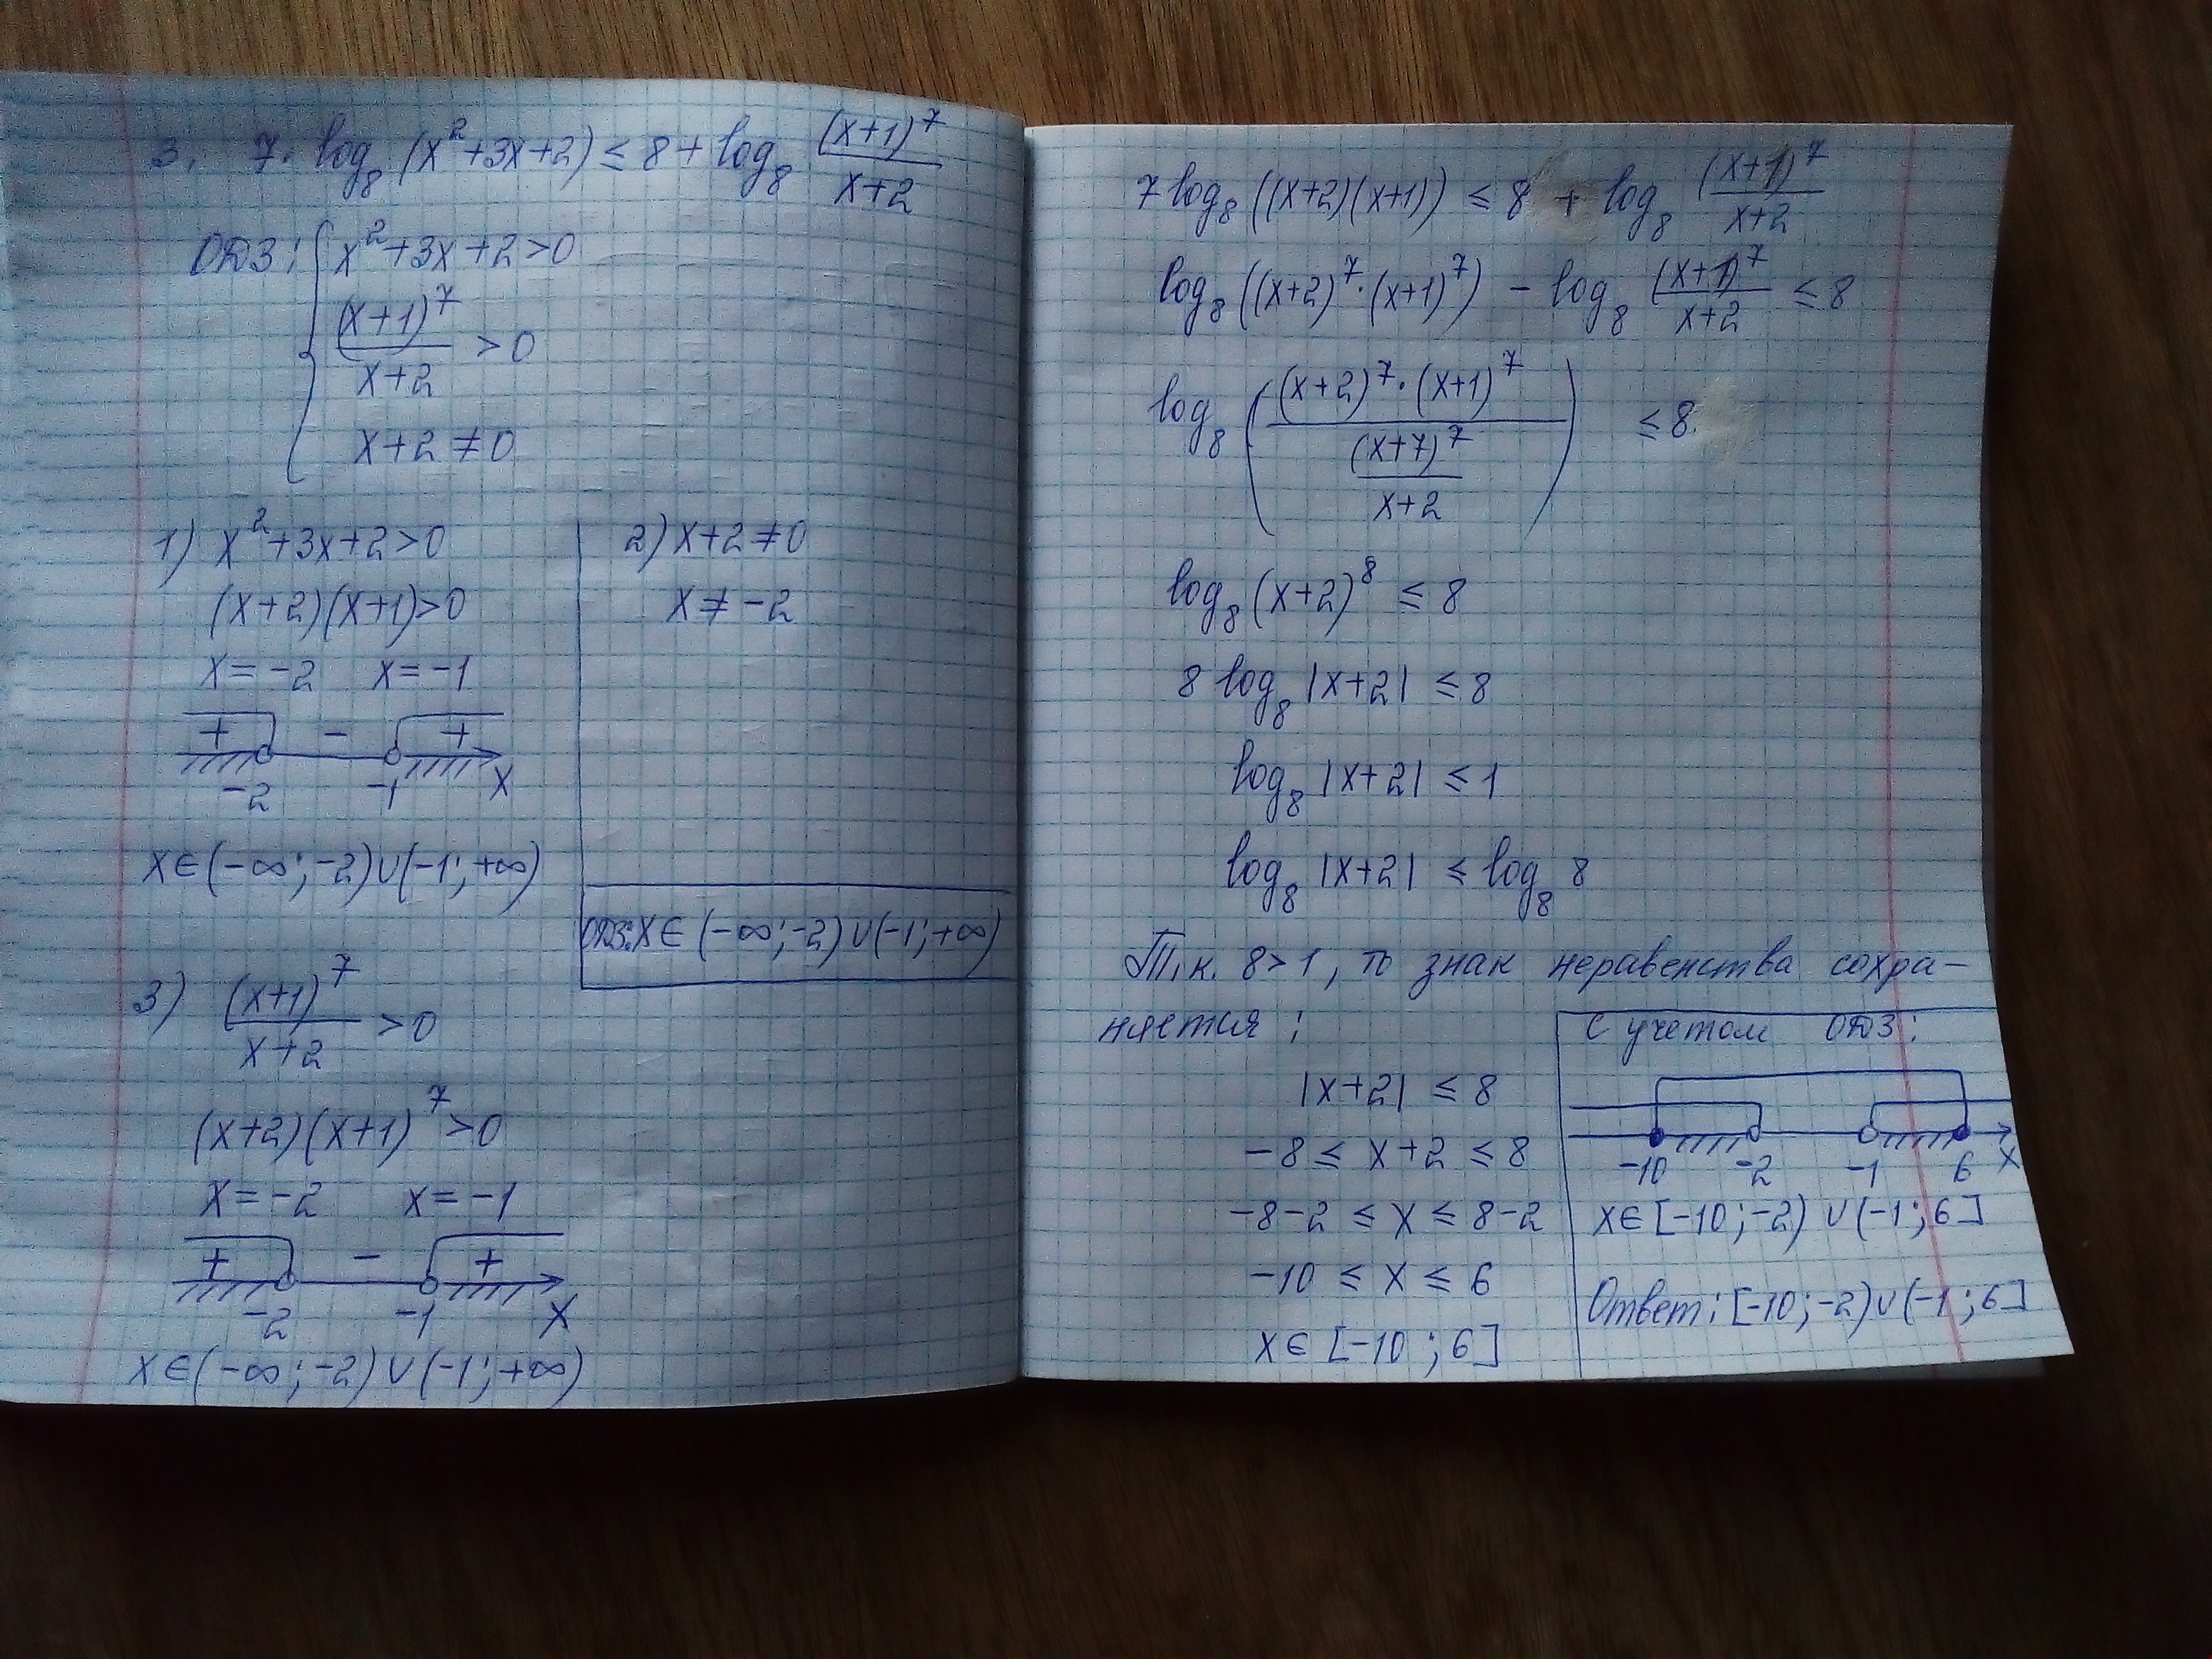 3. 7·log₈(x²+3x+2) ≤ 8 + log₈ (x+1)⁷/(x+2)
ОДЗ: { x²+3x+2>0
(x+1)⁷/(x+2) > 0
x+2 ≠ 0
1) x²+3x+2>0
(x+2)(x+1)>0
x=-2 x=-1
+ - +
-2 -1 x
x∈(-∞;-2)∪(-1;+∞)
2) x+2≠0
x ≠ -2
ОДЗ: x∈(-∞;-2)∪(-1;+∞)
3) (x+1)⁷/(x+2) > 0
(x+2)(x+1)⁷>0
x=-2 x=-1
+ - +
-2 -1 x
x∈(-∞;-2)∪(-1;+∞)
7log₈((x+2)(x+1)) ≤ 8 + log₈ (x+1)⁷/(x+2)
log₈((x+2)⁷·(x+1)⁷) - log₈ (x+1)⁷/(x+2) ≤ 8
log₈( (x+2)⁷·(x+1)⁷ / ((x+7)⁷/(x+2)) ) ≤ 8
log₈(x+2)⁸ ≤ 8
8 log₈|x+2| ≤ 8
log₈|x+2| ≤ 1
log₈|x+2| ≤ log₈ 8
Т.к. 8>1, то знак неравенства сохра-
няется:
|x+2| ≤ 8
-8 ≤ x+2 ≤ 8
-8-2 ≤ x ≤ 8-2
-10 ≤ x ≤ 6
x∈[-10;6]
С учетом ОДЗ:
-10 -2 -1 6 x
x∈[-10;-2)∪(-1;6]
Ответ: [-10;-2)∪(-1;6]